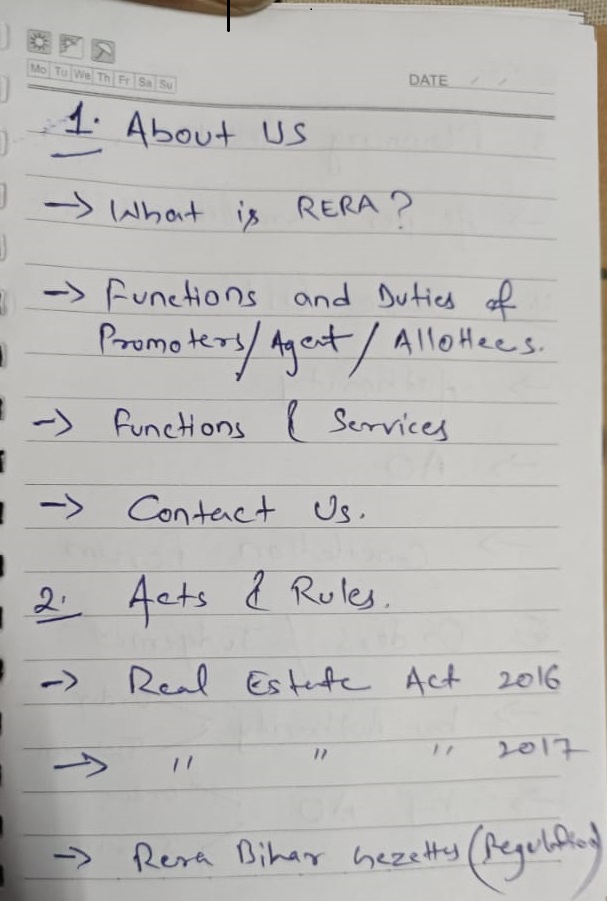 Mo Tu We Th Fr Sa Su
DATE / /
1. About US
→ What is RERA?
→ Functions and Duties of
Promoters/Agent/Allottees.
→ Functions & Services
→ Contact Us.
2. Acts & Rules.
→ Real Estate Act 2016
→ " " " 2017
→ Rera Bihar Gezettes (Regulation)